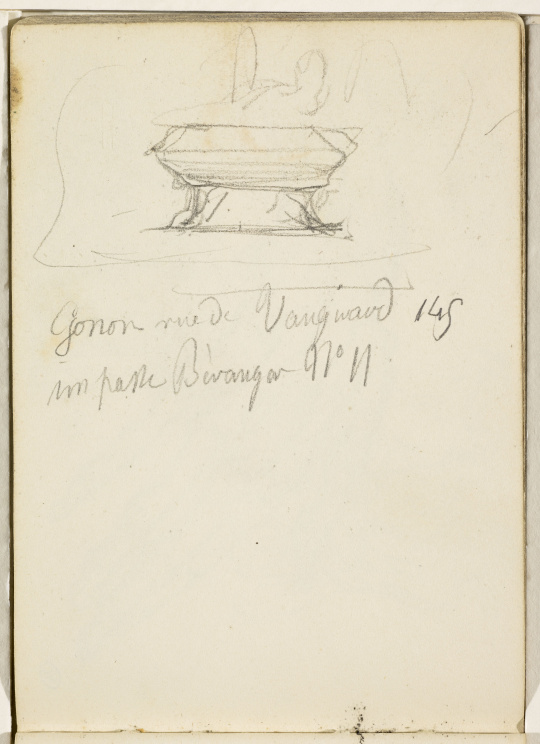 Gonon rue de Vaugirard 145
impasse Béranger N° 11